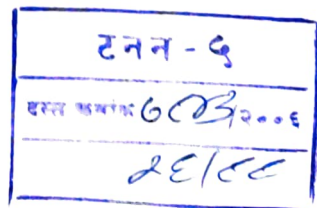 टनन - ५
दस्त क्रमांक /२००६
२६/८८